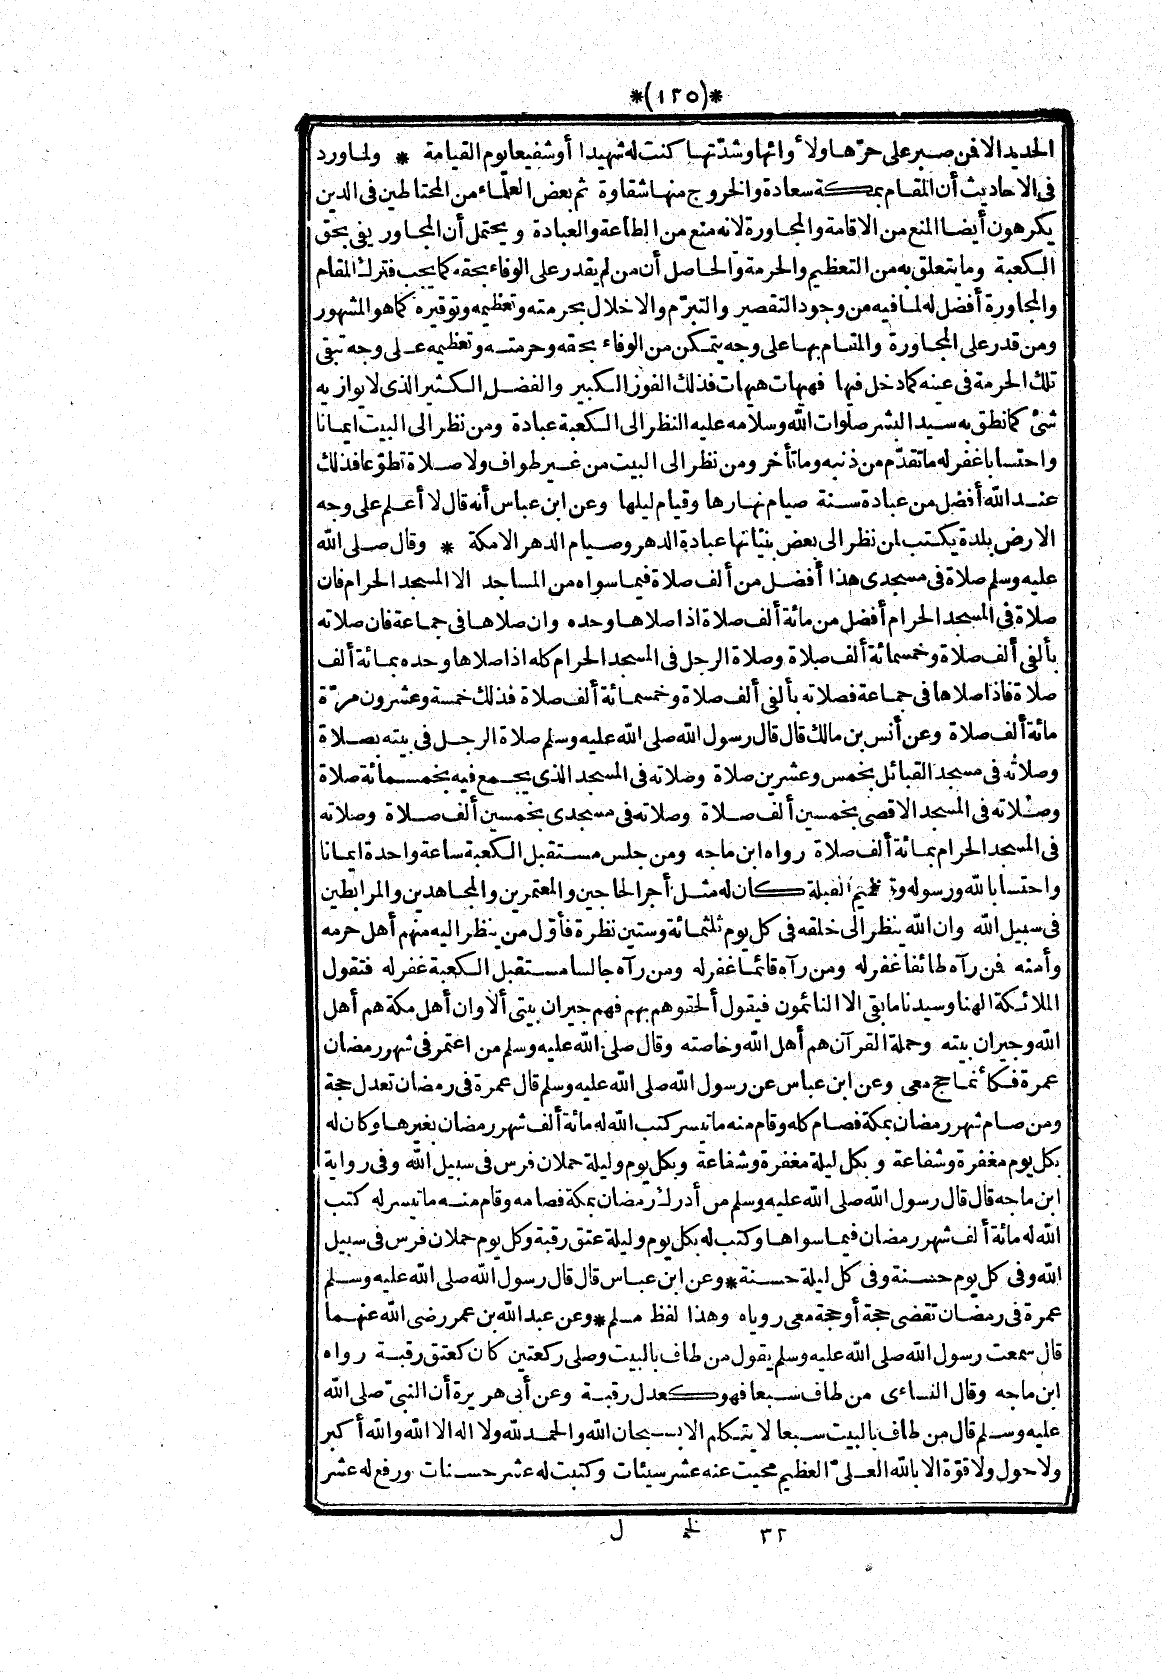 *(١٢٥)*
الحديد الا فمن صبر على حرّها ولأوائها وشدّتها كنت له شهيدا أوشفيعا يوم القيامة * ولما ورد
فى الاحاديث أن المقام بمكة سعادة والخروج منها شقاوة ثم بعض العلماء من المحتاطين فى الدين
يكرهون أيضا المنع من الاقامة والمجاورة لانه منع من الطاعة والعبادة ويحتمل أن المجاور يفى بحق
الكعبة وما يتعلق به من التعظيم والحرمة والحاصل أن من لم يقدر على الوفاء بحقه كما يجب فترك المقام
والمجاورة أفضل له لما فيه من وجود التقصير والتبرّم والاخلال بحرمته وتعظيمه وتوقيره كما هو المشهور
ومن قدر على المجاورة والمقام بها على وجه يتمكن من الوفاء بحقه وحرمته وتعظيمه على وجه تبقى
تلك الحرمة فى عينه كما دخل فيها فهيهات هيهات فذلك الفوز الكبير والفضل الكثير الذى لا يوازيه
شئ كما نطق به سيد البشر صلوات الله وسلامه عليه النظر الى الكعبة عبادة ومن نظر الى البيت ايمانا
واحتسابا غفر له ما تقدّم من ذنبه وما تأخر ومن نظر الى البيت من غير طواف ولا صلاة تطوّعا فذلك
عند الله أفضل من عبادة سنة صيام نهارها وقيام ليلها وعن ابن عباس أنه قال لا أعلم على وجه
الارض بلدة يكتب لمن نظر الى بعض بنيّاتها عبادة الدهر وصيام الدهر الامكة * وقال صلى الله
عليه وسلم صلاة فى مسجدى هذا أفضل من ألف صلاة فيما سواه من المساجد الا المسجد الحرام فان
صلاة فى المسجد الحرام أفضل من مائة ألف صلاة اذا صلاها وحده وان صلاها فى جماعة فان صلاته
بألفى ألف صلاة وخمسمائة ألف صلاة وصلاة الرجل فى المسجد الحرام كله اذا صلاها وحده بمائة ألف
صلاة فاذا صلاها فى جماعة فصلاته بألفى ألف صلاة وخمسمائة ألف صلاة فذلك خمسة وعشرون مرّة
مائة ألف صلاة وعن أنس بن مالك قال قال رسول الله صلى الله عليه وسلم صلاة الرجل فى بيته بصلاة
وصلاته فى مسجد القبائل بخمس وعشرين صلاة وصلاته فى المسجد الذى يجمع فيه بخمسمائة صلاة
وصلاته فى المسجد الاقصى بخمسين ألف صلاة وصلاته فى مسجدى بخمسين ألف صلاة وصلاته
فى المسجد الحرام بمائة ألف صلاة رواه ابن ماجه ومن جلس مستقبل الكعبة ساعة واحدة ايمانا
واحتسابا لله ورسوله وتعظيم القبلة كان له مثل أجر الحاجين والمعتمرين والمجاهدين والمرابطين
فى سبيل الله وان الله ينظر الى خلقه فى كل يوم ثلثمائة وستين نظرة فأوّل من ينظر اليه منهم أهل حرمه
وأمنه فمن رآه طائفا غفر له ومن رآه قائما غفر له ومن رآه جالسا مستقبل الكعبة غفر له فتقول
الملائكة الهنا وسيدنا ما بقى الا النائمون فيقول ألحقوهم بهم فهم جيران بيتى ألا وان أهل مكة هم أهل
الله وجيران بيته وحملة القرآن هم أهل الله وخاصته وقال صلى الله عليه وسلم من اعتمر فى شهر رمضان
عمرة فكأنما حج معى وعن ابن عباس عن رسول الله صلى الله عليه وسلم قال عمرة فى رمضان تعدل حجة
ومن صام شهر رمضان بمكة فصام كله وقام منه ما تيسر كتب الله له مائة ألف شهر رمضان بغيرها وكان له
بكل يوم مغفرة وشفاعة وبكل ليلة مغفرة وشفاعة وبكل يوم وليلة حملان فرس فى سبيل الله وفى رواية
ابن ماجه قال قال رسول الله صلى الله عليه وسلم من أدرك رمضان بمكة فصامه وقام منه ما تيسر له كتب
الله له مائة ألف شهر رمضان فيما سواها وكتب له بكل يوم وليلة عتق رقبة وكل يوم حملان فرس فى سبيل
الله وفى كل يوم حسنة وفى كل ليلة حسنة * وعن ابن عباس قال قال رسول الله صلى الله عليه وسلم
عمرة فى رمضان تقضى حجة أو حجة معى روياه وهذا لفظ مسلم * وعن عبد الله بن عمر رضى الله عنهما
قال سمعت رسول الله صلى الله عليه وسلم يقول من طاف بالبيت وصلى ركعتين كان كعتق رقبة رواه
ابن ماجه وقال النساءى من طاف سبعا فهو كعدل رقبة وعن أبى هريرة أن النبىّ صلى الله
عليه وسلم قال من طاف بالبيت سبعا لا يتكلم الا بسبحان الله والحمد لله ولا اله الا الله والله أكبر
ولا حول ولا قوّة الا بالله العلىّ العظيم محيت عنه عشر سيئات وكتبت له عشر حسنات ورفع له عشر
٣٢ خ ل